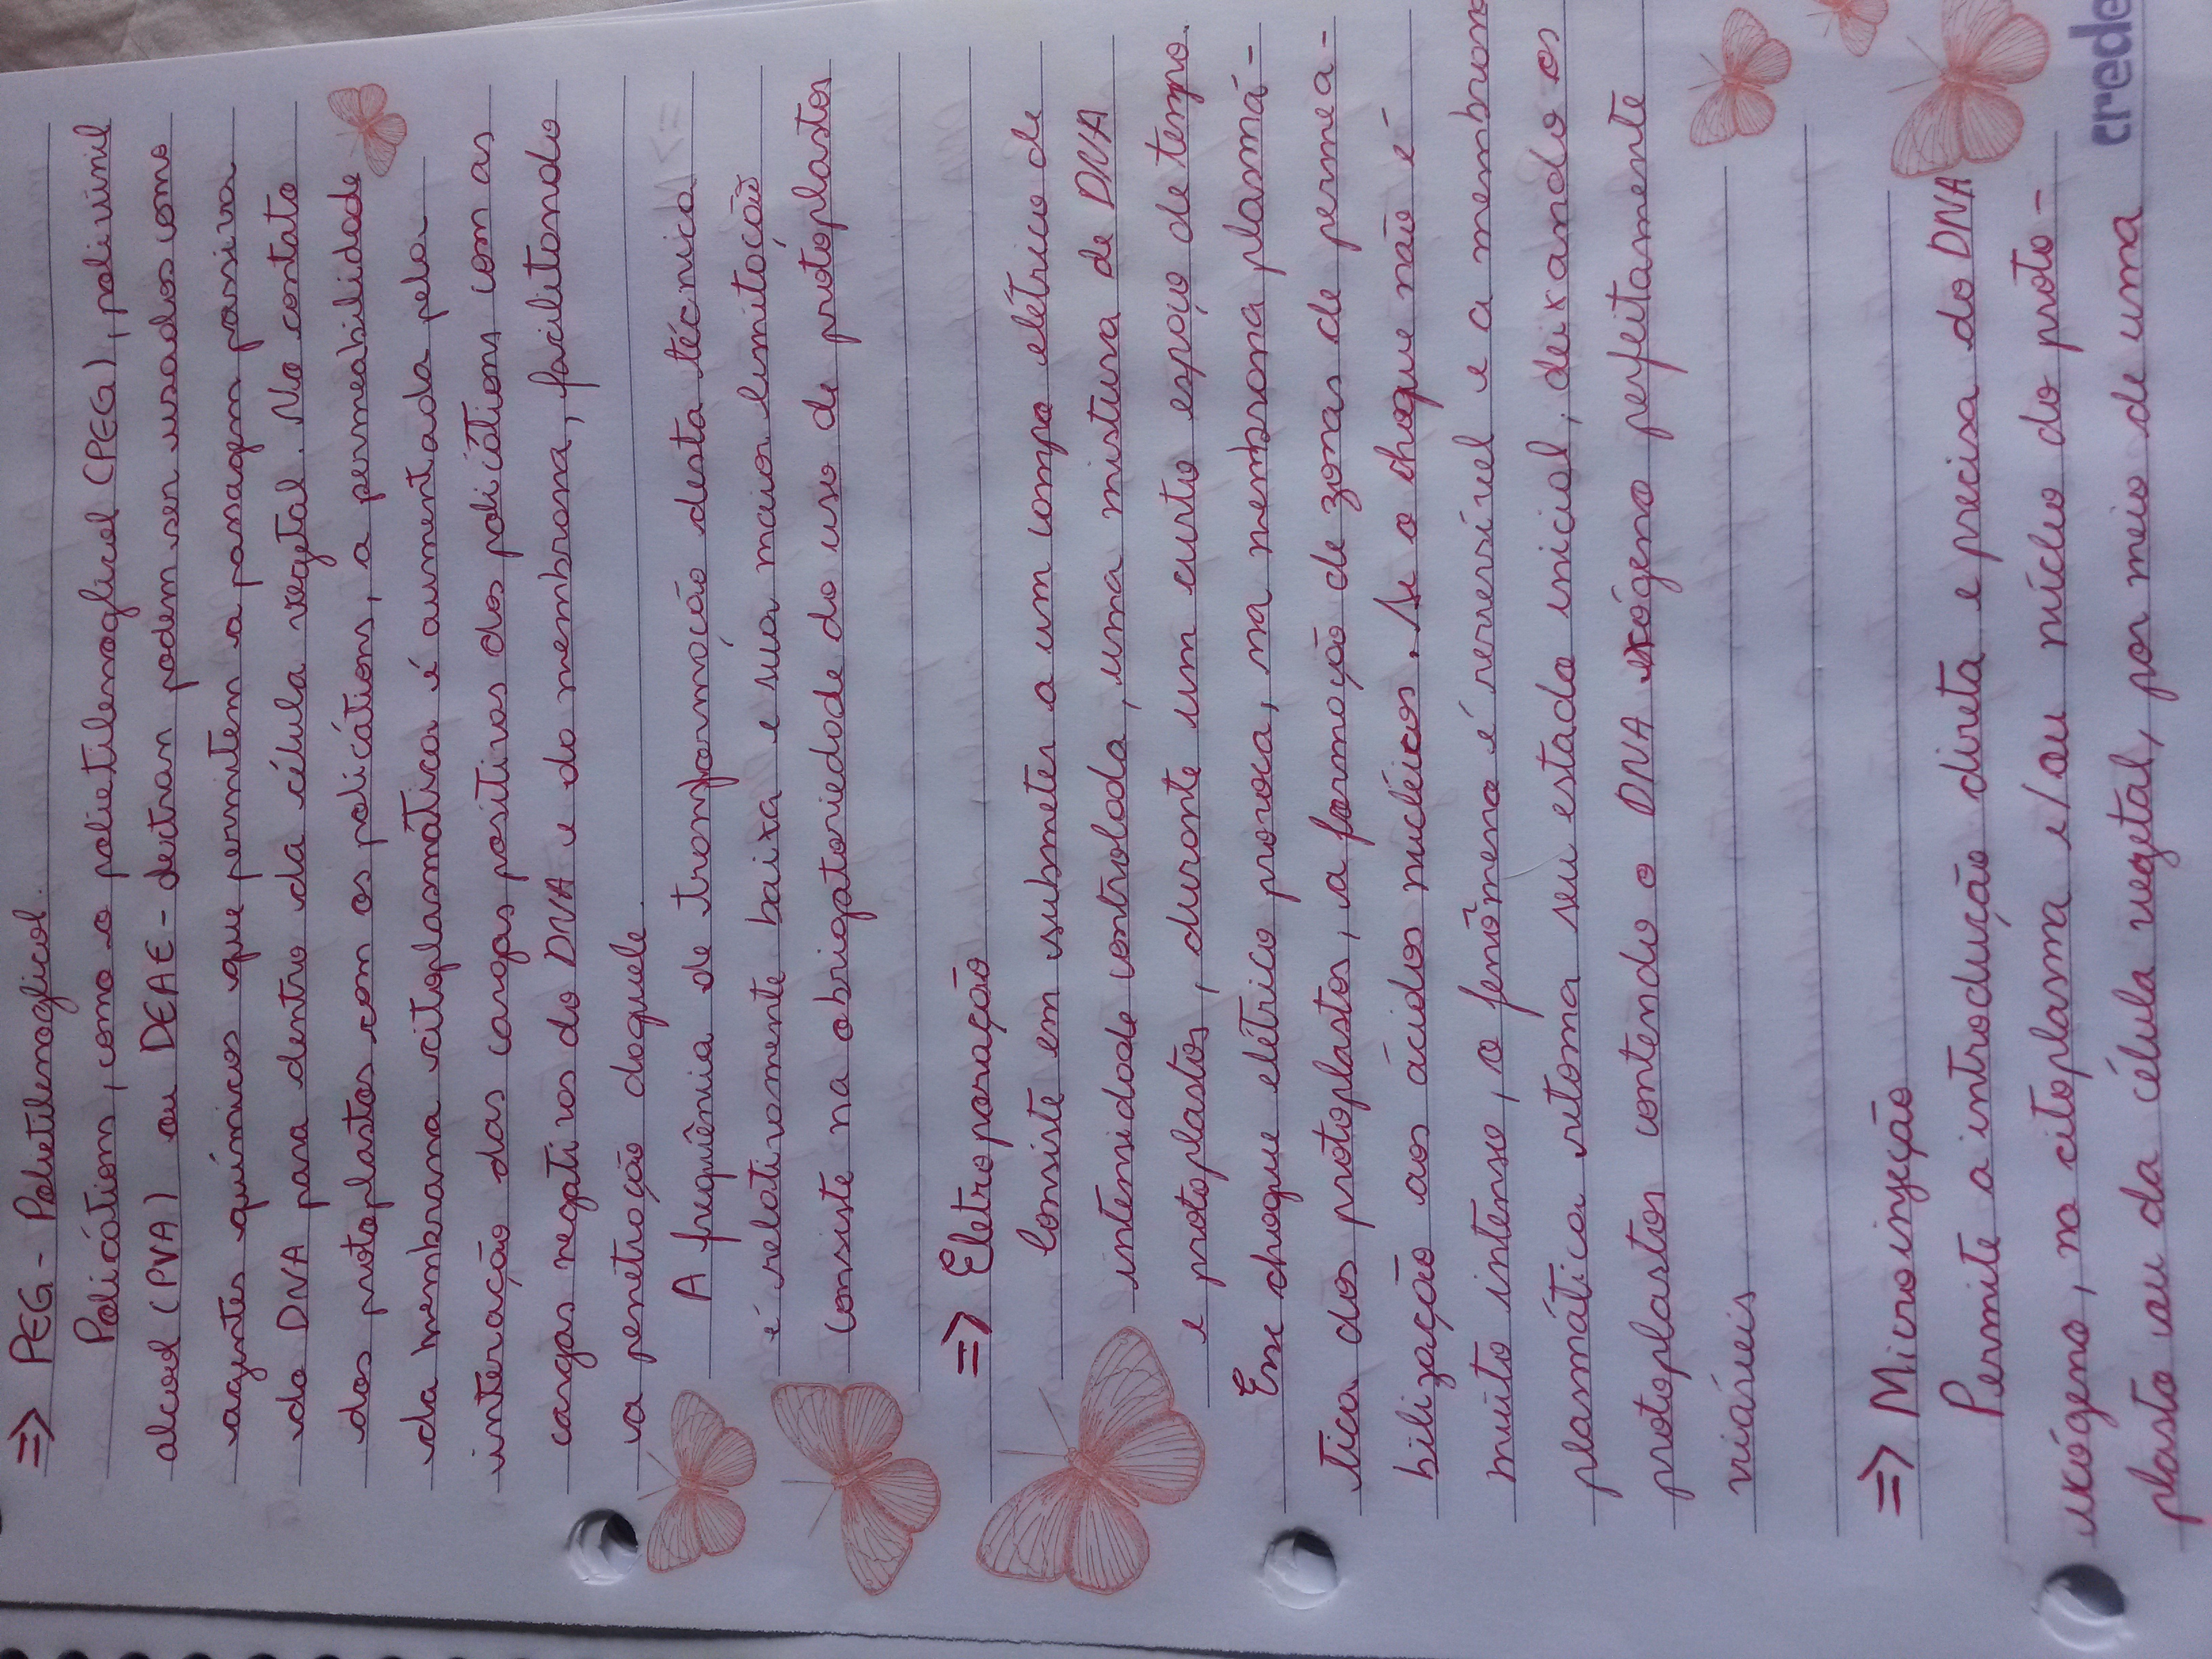 => PEG - Polietilenoglicol.
Policátions, como o polietilenoglicol (PEG), polivinil
alcool (PVA) ou DEAE - dextran podem ser usados como
agentes químicos que permitem a passagem passiva
do DNA para dentro da célula vegetal. No contato
dos protoplastos com os policátions, a permeabilidade
da membrana citoplasmática é aumentada pela
interação das cargas positivas dos policátions com as
cargas negativas do DNA e da membrana, facilitando
a penetração daquele.
A frequência de transformação desta técnica
é relativamente baixa e sua maior limitação
consiste na obrigatoriedade do uso de protoplastos
=> Eletroporação
Consiste em submeter a um campo elétrico de
intensidade controlada, uma mistura de DNA
e protoplastos, durante um curto espaço de tempo.
Esse choque elétrico provoca, na membrana plasmá-
tica dos protoplastos, a formação de zonas de permea-
bilização aos ácidos nucléicos. Se o choque não é
muito intenso, o fenômeno é reversível e a membrana
plasmática retoma seu estado inicial, deixando os
protoplastos contendo o DNA exógeno perfeitamente
viáveis
=> Microinjeção
Permite a introdução direta e precisa do DNA
exógeno, no citoplasma e/ou núcleo do proto-
plasto ou da célula vegetal, por meio de uma
crede